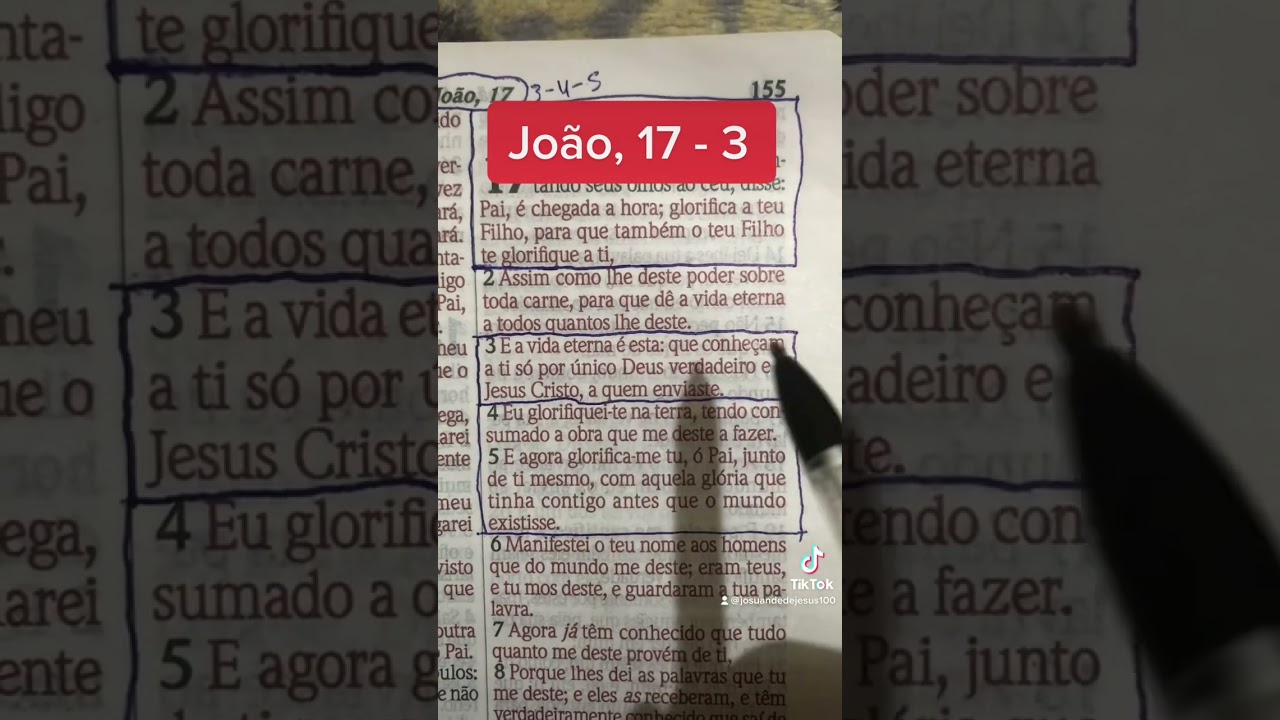 João, 17
3-4-5
155
João, 17 - 3
17 tando seus olhos ao céu, disse:
Pai, é chegada a hora; glorifica a teu
Filho, para que também o teu Filho
te glorifique a ti,
2 Assim como lhe deste poder sobre
toda carne, para que dê a vida eterna
a todos quantos lhe deste.
3 E a vida eterna é esta: que conheçam
a ti só por único Deus verdadeiro e
Jesus Cristo, a quem enviaste.
4 Eu glorifiquei-te na terra, tendo con-
sumado a obra que me deste a fazer.
5 E agora glorifica-me tu, ó Pai, junto
de ti mesmo, com aquela glória que
tinha contigo antes que o mundo
existisse.
6 Manifestei o teu nome aos homens
que do mundo me deste; eram teus,
e tu mos deste, e guardaram a tua pa-
lavra.
7 Agora já têm conhecido que tudo
quanto me deste provém de ti,
8 Porque lhes dei as palavras que tu
me deste; e eles as receberam, e têm
verdadeiramente conhecido que saí de
TikTok
@josuandedejesus100
te glorifique
2 Assim co
toda carne,
a todos qua
3 E a vida et
a ti só por ú
Jesus Cristo
4 Eu glorifi
sumado a o
5 E agora g
oder sobre
ida eterna
conheçam
adeiro e
te.
tendo con
e a fazer.
Pai, junto